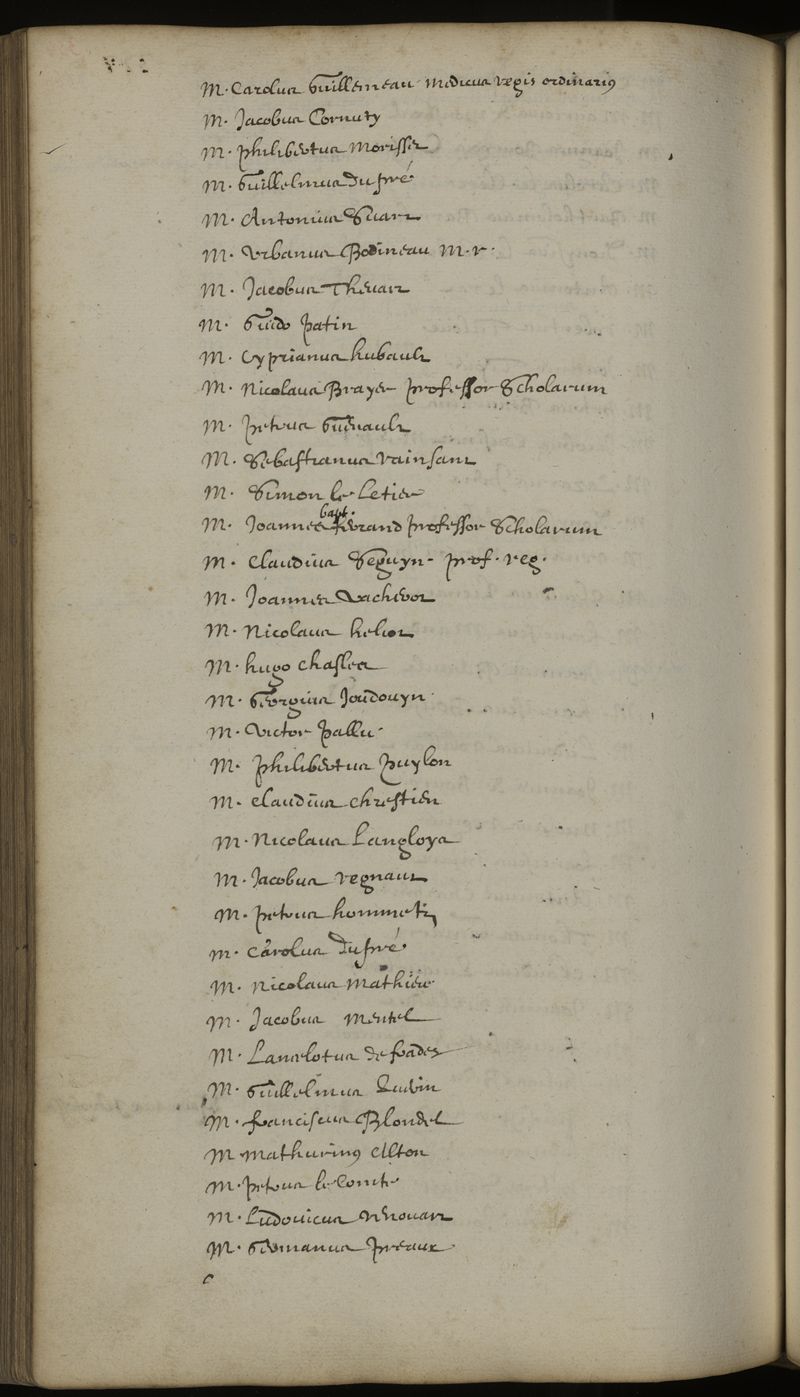 M. Carolus Guillemeau Medicus regis ordinarius
M. Jacobus Cornuty
M. philibertus Morisset
M. Guillelmus Dupré
M. Antonius
M. Urbanus Bodineau M. r.
M. Jacobus Thevart
M. Guido patin
M. Cyprianus hubault
M. Nicolaus Brayer professor Scholarum
M. petrus Guenault
M. Sebastianus Rainsant
M. Simon le Letier
M. Joannes bapt. Ferrand professor Scholarum
M. Claudius Seguyn prof. reg.
M. Joannes Vacherot
M. Nicolaus heliot
M. hugo Chasles
M. Georgius Joudouyn
M. Victor pallu
M. philibertus puylon
M. Claudius Chrestien
M. Nicolaus Langloys
M. Jacobus Regnault
M. petrus hommetz
M. Carolus Dupré
M. Nicolaus Mathieu
M. Jacobus Mentel
M. Lancelotus de frades
M. Guillelmus
M. franciscus Blondel
M Mathurinus
M. petrus le Conte
M. Ludovicus
M. Germanus preaux